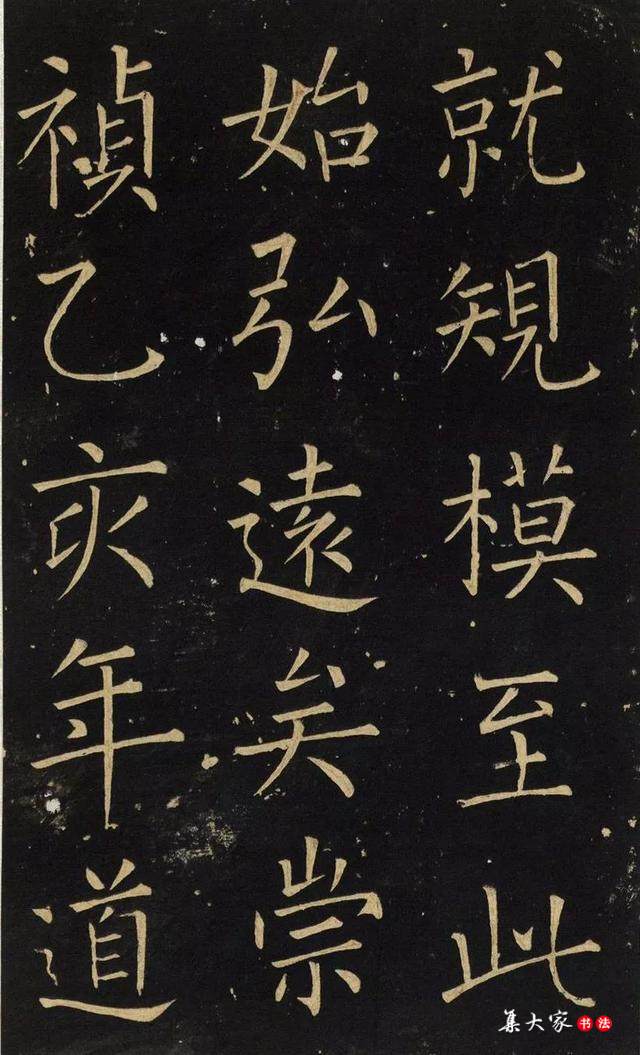 就規模至此
始弘遠矣崇
禎乙亥年道
集大家书法